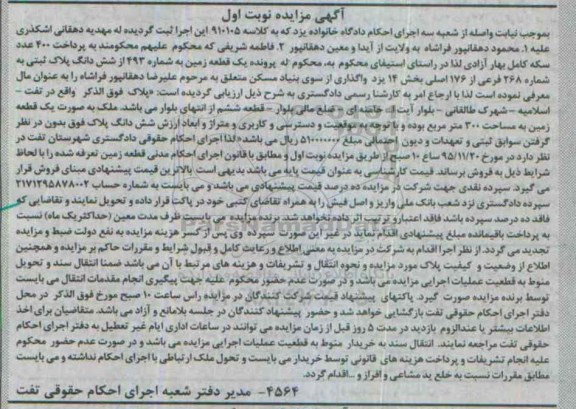 آگهی مزایده نوبت اول
بموجب نیابت واصله از شعبه سه اجرای احکام دادگاه خانواده یزد که به کلاسه ۹۱۰۱۰۵ این اجرا ثبت گردیده له مهدیه دهقانی اشکذری
علیه ۱. محمود دهقانپور فراشاه به ولایت از آیدا و معین دهقانپور ۲. فاطمه شریفی که محکوم علیهم محکومند به پرداخت ۴۰۰ عدد
سکه کامل بهار آزادی لذا در راستای استیفای محکوم به، محکوم له پرونده یک قطعه زمین به شماره ۴۹۳ از شش دانگ پلاک ثبتی به
شماره ۲۶۸ فرعی از ۱۷۶ اصلی بخش ۱۴ یزد واگذاری از سوی بنیاد مسکن متعلق به مرحوم علیرضا دهقانپور فراشاه را به عنوان مال
معرفی نموده است لذا با ارجاع امر به کارشنا رسمی دادگستری به شرح ذیل ارزیابی گردیده است: «پلاک فوق الذکر واقع در تفت -
اسلامیه - شهرک طالقانی - بلوار آیت ا... خامنه ای - ضلع مالی بلوار - قطعه ششم از انتهای بلوار می باشد. ملک به صورت یک قطعه
زمین به مساحت ۳۰۰ متر مربع بوده و با توجه به موقعیت و دسترسی و کاربری و متراژ و ابعاد ارزش شش دانگ پلاک فوق بدون در نظر
گرفتن سوابق ثبتی و تعهدات و دیون احتمالی مبلغ ۵۱۰۰۰۰۰۰۰ ریال می باشد» لذا اجرای احکام حقوقی دادگستری شهرستان تفت در
نظر دارد در مورخ ۹۵/۱۱/۲۰ ساعت ۱۰ صبح از طریق مزایده نوبت اول و مطابق با قانون اجرای احکام مدنی قطعه زمین تعرفه شده را با لحاظ
شرایط ذیل به فروش برساند. قیمت کارشناسی به عنوان قیمت پایه می باشد بدیهی است بالاترین قیمت پیشنهادی مبنای فروش قرار
می گیرد. سپرده نقدی جهت شرکت در مزایده ده درصد قیمت پیشنهادی می باشد و می بایست به شماره حساب ۲۱۷۱۲۹۵۸۷۸۰۰۲
سپرده دادگستری نزد شعب بانک ملی واریز و اصل فیش را به همراه تقاضای کتبی خود در پاکت قرار داده و تحویل نمایند و تقاضایی که
فاقد ده درصد سپرده باشد فاقد اعتبار و ترتیب اثر داده نخواهد شد. برنده مزایده می بایست ظرف مدت معین (حداکثر یک ماه) نسبت
به پرداخت باقیمانده مبلغ پیشنهادی اقدام نماید در غیر این صورت سپرده وی پس از کسر هزینه مزایده به نفع دولت ضبط و مزایده
تجدید می گردد. از نظر اجرا اقدام به شرکت در مزایده به معنی اطلاع و رعایت کامل و قبول شرایط و مقررات حاکم بر مزایده و همچنین
اطلاع از وضعیت و کیفیت پلاک مورد مزایده و نحوه انتقال و تشریفات و هزینه های مرتبط با آن می باشد ضمنا انتقال سند و تحویل
منوط به قطعیت عملیات اجرایی مزایده می باشد و در صورت عدم حضور محکوم علیه جهت پیگیری انجام مقدمات انتقال می بایست
توسط برنده مزایده صورت گیرد. پاکتهای پیشنهاد قیمت شرکت کنندگان در مزایده راس ساعت ۱۰ صبح مورخ فوق الذکر در محل
دفتر اجرای احکام حقوقی تفت بازگشایی خواهد شد و حضور پیشنهاد کنندگان در جلسه بلامانع و آزاد می باشد. متقاضیان برای اخذ
اطلاعات بیشتر یا عندالزوم بازدید در مدت ۵ روز قبل از زمان مزایده می توانند در ساعات اداری ایام غیر تعطیل به دفتر اجرای احکام
حقوقی تفت مراجعه نمایند. انتقال سند به خریدار منوط به قطعیت عملیات اجرایی مزایده می باشد و در صورت عدم حضور محکوم
علیه انجام تشریفات و پرداخت هزینه های قانونی توسط خریدار می بایست و تحول ملک ارتباطی با اجرای احکام نداشته و می بایست
مطابق مقررات نسبت به خلع ید مشاعی و افراز و ... اقدام گردد.
۴۵۶۴- مدیر دفتر شعبه اجرای احکام حقوقی تفت